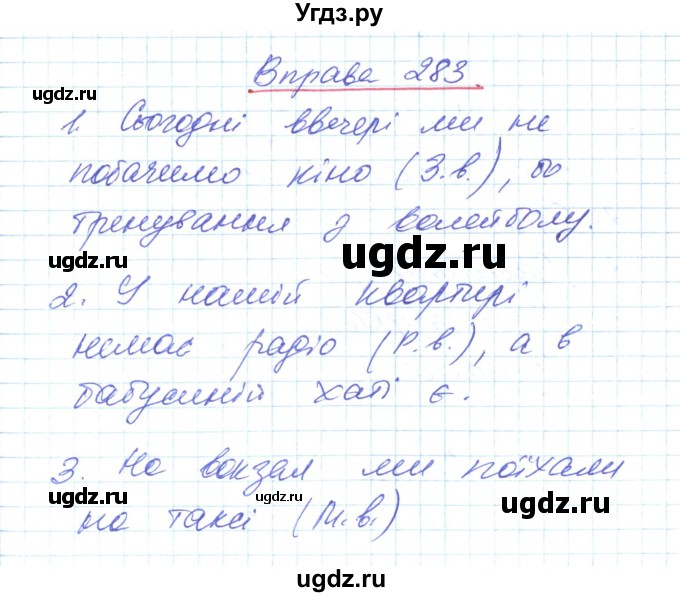 Угдз.ру
Вправа 283
ugdz.ru
1. Сьогодні ввечері ми не
побачимо кіно (З.в.), бо
тренування з волейболу.
ugdz.ru ugdz.ru
2. У нашій квартирі
немає радіо (Р.в.), а в
ugdz.ru ugdz.ru
бабусиній хаті є.
3. На вокзал ми поїхали
ugdz.ru ugdz.ru ugdz.ru
на таксі (М.в.)
ugdz.ru